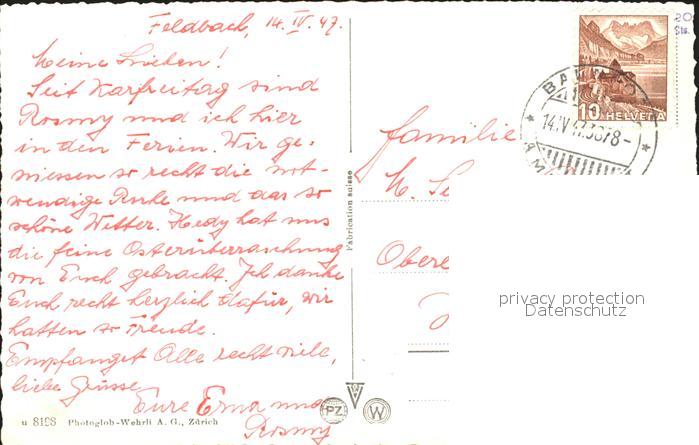 Feldbach, 14. IV. 47.
Meine Lieben!
Seit Karfreitag sind
Rosmy und ich hier
in den Ferien. Wir ge-
niessen so recht die not-
wendige Ruhe und das so
schöne Wetter. Hedy hat uns
die feine Osterüberraschung
von Euch gebracht. Ich danke
Euch recht herzlich dafür, wir
hatten so Freude.
Empfanget Alle recht viele,
liebe Grüsse
Eure Erna und
Rosmy
u 8198 Photoglob-Wehrli A. G., Zürich
Fabrication suisse
PZ W
10 HELVETIA
familie
Obere
privacy protection
Datenschutz